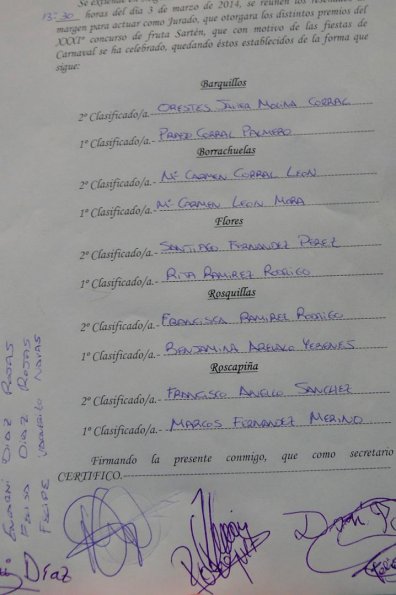 Se expende en
13:30 horas del día 3 de marzo de 2014, se reúnen los
margen para actuar como Jurado, que otorgara los distintos premios del
XXXIº concurso de fruta Sartén, que con motivo de las fiestas de
Carnaval se ha celebrado, quedando éstos establecidos de la forma que
sigue:
Barquillos
2º Clasificado/a.- ORESTES JAVIER MOLINA CORRAL
1º Clasificado/a.- PRADO CORRAL PALMERO
Borrachuelas
2º Clasificado/a.- Mª CARMEN CORRAL LEON
1º Clasificado/a.- Mª CARMEN LEON MORA
Flores
2º Clasificado/a.- SANTIAGO FERNANDEZ PEREZ
1º Clasificado/a.- RITA RAMIREZ RODRIGO
Rosquillas
2º Clasificado/a.- FRANCISCA RAMIREZ RODRIGO
1º Clasificado/a.- BENJAMINA AREVALO YEBENES
Roscapiña
2º Clasificado/a.- FRANCISCO ANELLO SANCHEZ
1º Clasificado/a.- MARCOS FERNANDEZ MERINO
Firmando la presente conmigo, que como secretario
CERTIFICO.
DIAZ ROJAS
FELISA DIAZ ROJAS
FELIPE NAVAS
Díaz